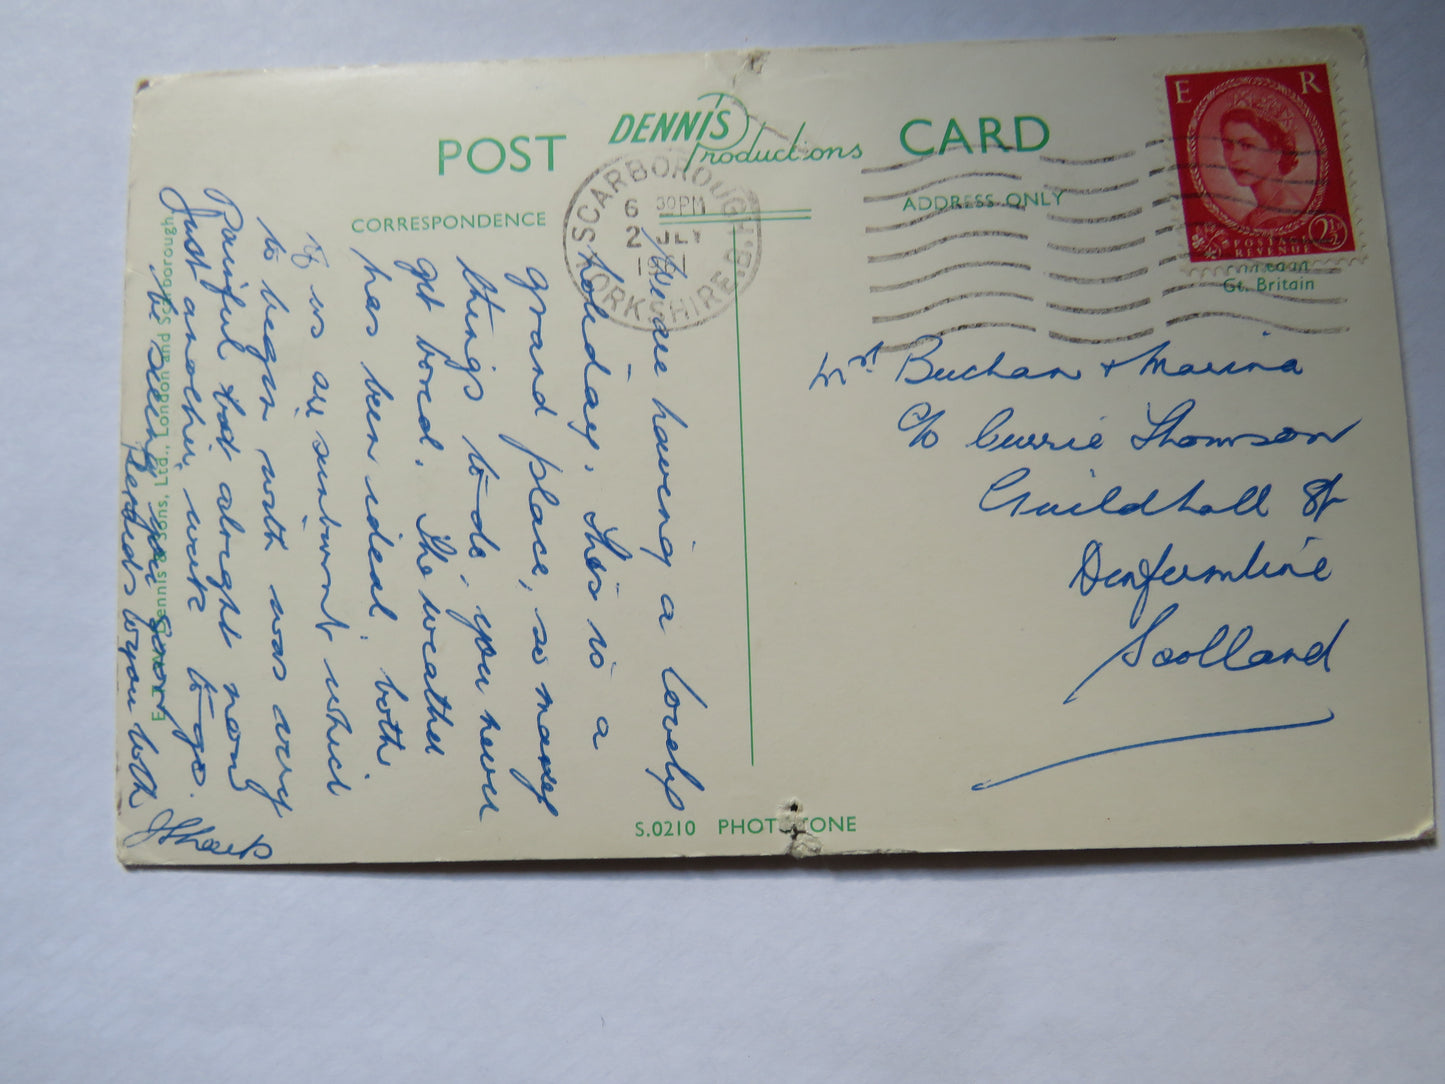 POST
DENNIS
Productions
CARD
CORRESPONDENCE
ADDRESS ONLY
SCARBOROUGH
6 30PM
2 JLY
YORKSHIRE. B.
E R
2½
POSTAGE
REVENUE
Gt. Britain
We are having a lovely
holiday. This is a
grand place, so many
things to do, you never
get bored. The weather
has been ideal, both
of us are sunburnt which
to begin with was very
Painful but alright now
Just another week to go.
be seeing you soon
Regards to you both
J Sharp
Mrs Buchan + Marina
c/o Currie Thomson
Guildhall St
Dunfermline
Scotland
E.T.W. Dennis & Sons, Ltd., London and Scarborough
S.0210 PHOTOTONE